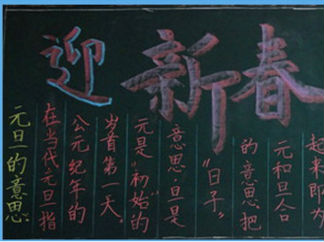 迎新春
元旦的意思
在当代元旦指
公元纪年的
岁首第一天。
元是“初始”的
意思,旦是
“日子”
的意思,把
元和旦合
起来即为